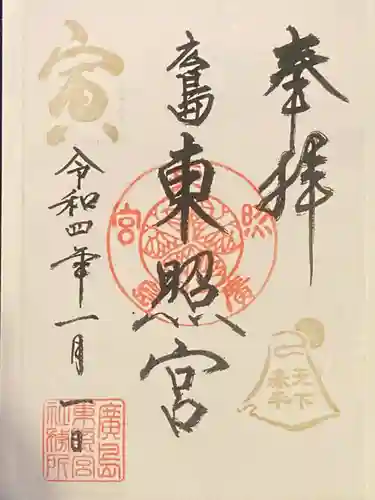 奉拝
廣島東照宮
寅
令和四年一月一日
天下泰平
廣島東照宮社務所